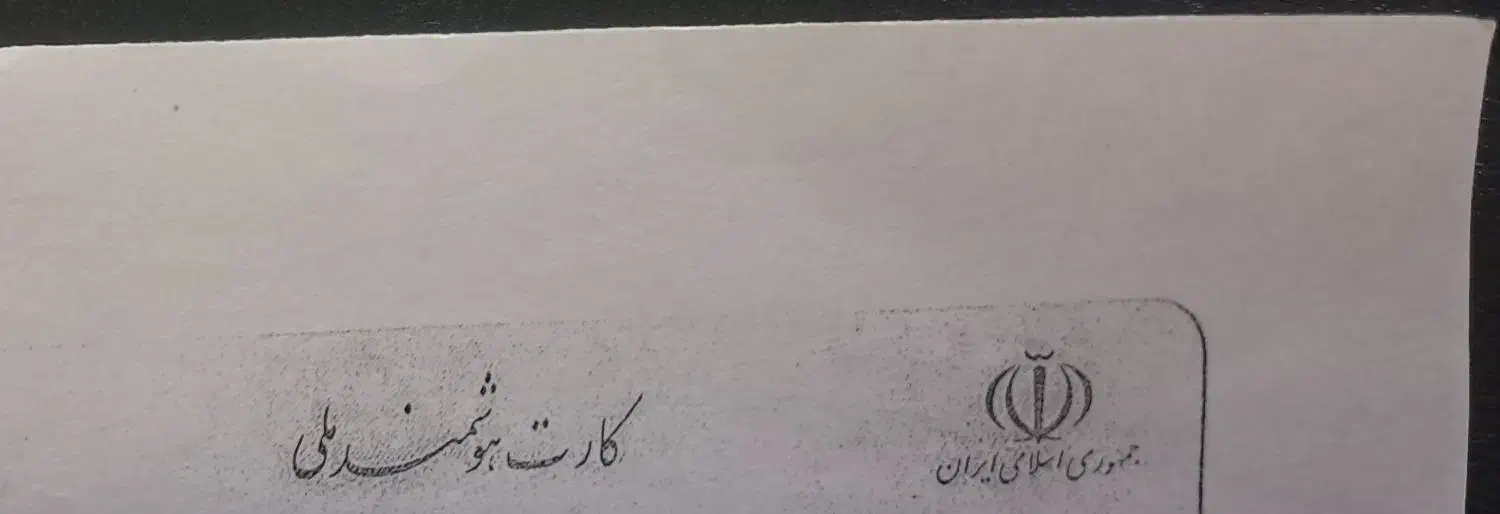 جمهوری اسلامی ایران
کارت هوشمند ملی